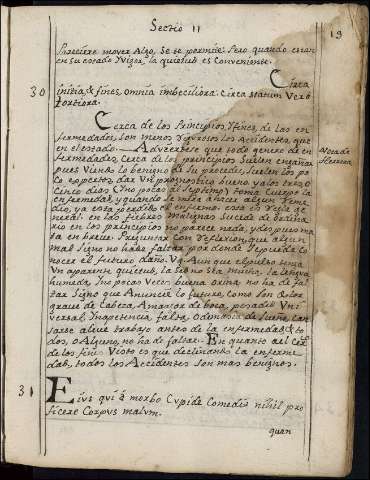 Sectio II
19
Pareciere mover Algo, Se te permite. Pero quando estan
en su estado y vigor, la quietud es Conveniente.
30
Circa
initia, & fines, omnia imbeciliora. Circa statum Vero
fortiora.
Cerca de los Principios, y fines, de las en
fermedades, son menos Vigorosos los Accidentes, que
en el estado. Adviertese que todo genero de en
fermedades, Cerca de los principios Suelen engañar
pues Viendo lo benigno de su proceder, Suelen los po
co expertos dar Un prognostico bueno y a los tres o
Cinco dias (y no pocas al Septimo) toma Cuerpo la
enfermedad, y quando se
dio, ya esta perdido el enfermo: esta es Regla ge
neral. en las fiebres malignas Sucede de ordina
rio en los principios no parece nada, y despues ma
ta en breve. Preguntar Con reflexion, que algun
mal Signo no ha de faltar por donde Se pueda Co
nocer el futuro daño. V.g. Aun que el pulso tenga
Un aparente quietud, la Sed no sea mucha, la lengua
humeda, y no pocas Veces buena orina no ha de fal
tar Signo que Anuncie lo futuro, Como son dolor
grave de Cabeza, Amargor de boca, pesadez Uni
versal, Inapetencia, falta, o demasia de Sueño, Can
sarse al trabajo antes de la enfermedad, & to
dos, o Alguno, no ha de faltar. En quanto a el Caso
de los fines, Visto es que declinando la enferme
dad, todos los Accidentes son mas benignos.
31
Eius qui è morbo Cupide Comedit nihil pro
ficere Corpus malum.
quan